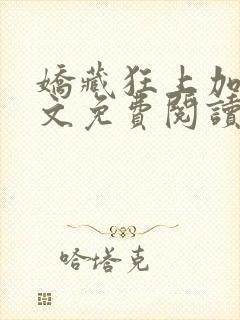 嬌藏狂上加
文免費閱讀
哈塔克